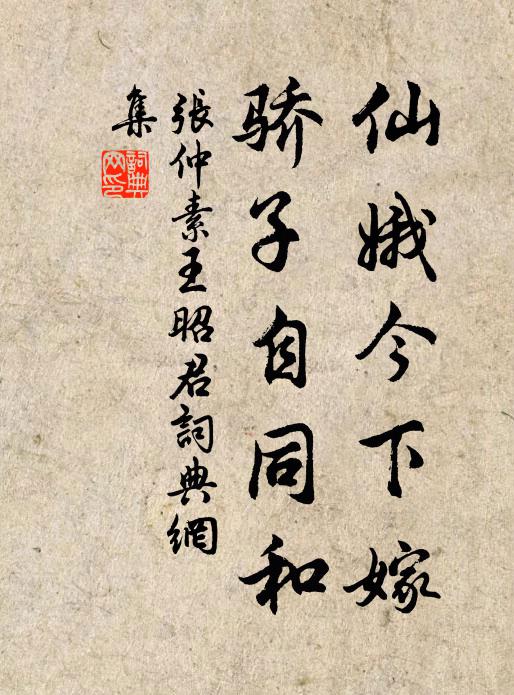 仙娥今下嫁
骄子自同和
張仲素王昭君詞典網
集
詞典
网印